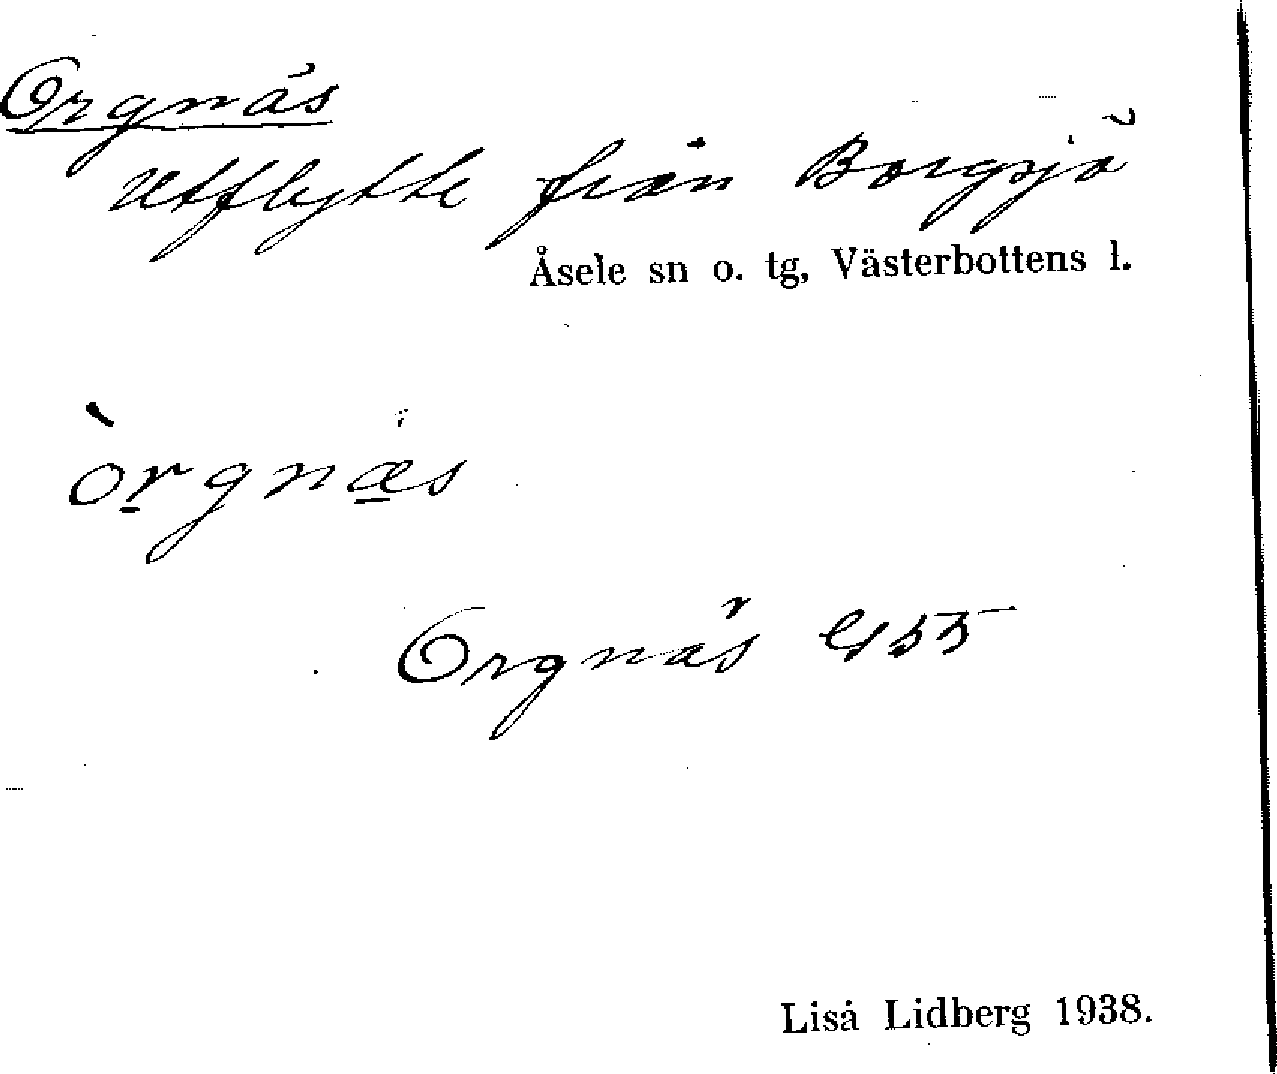 Orgnäs
Utflytte från Borgsjö
Åsele sn o. tg, Västerbottens l.
òrgnæs
Orgnäs G55
Lisa Lidberg 1938.